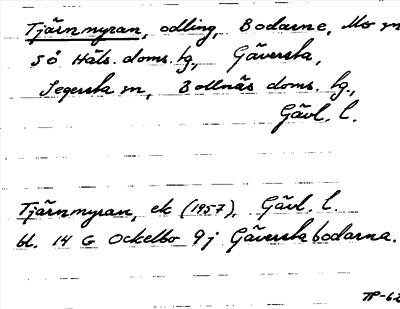 Tjärnmyran, odling, Bodarne, Mo sn
SÖ Häls. doms. hg,
Segersta sn, Bollnäs doms. hg.,
Gävl. l.
Tjärnmyran, ek (1957), Gävl. l.
bl. 14 G Ockelbo 9j Gäverstabodarna.
TP-62